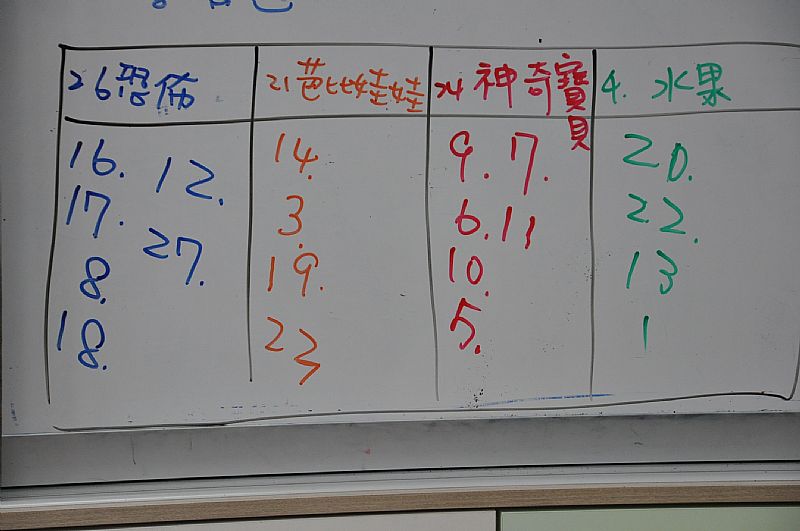 26恐怖
16. 12.
17. 27.
8.
18.
21芭比娃娃
14.
3.
19.
23
24神奇寶貝
9. 7.
6. 11
10.
5.
4. 水果
20.
22.
13
1